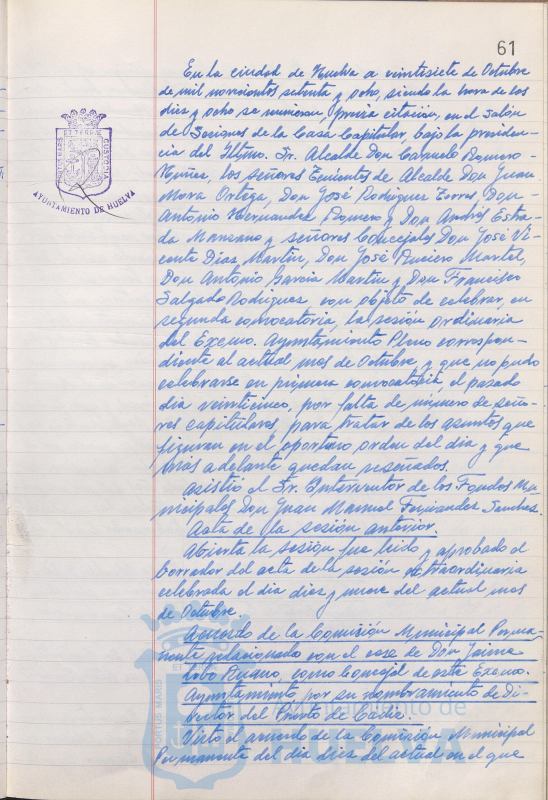 61
En la ciudad de Huelva a veintisiete de Octubre
de mil novecientos setenta y ocho, siendo la hora de las
diez y ocho se reunieron, previa citación, en el Salón
de Sesiones de la Casa Capitular, bajo la presiden-
cia del Iltmo. Sr. Alcalde Don Carmelo Romero
Núñez, los señores Tenientes de Alcalde Don Juan
Mora Ortega, Don José Rodríguez Torres, Don
Antonio Hernández Romero y Don Andrés Estra-
da Manzano y señores Concejales Don José Vi-
cente Díaz Martín, Don José Martel,
Don Antonio García Martín y Don Francisco
Salgado Rodríguez, con objeto de celebrar, en
segunda convocatoria, la sesión ordinaria
del Excmo. Ayuntamiento Pleno correspon-
diente al actual mes de Octubre y que no pudo
celebrarse en primera convocatoria, el pasado
día veinticinco, por falta de número de seño-
res capitulares, para tratar de los asuntos que
figuran en el oportuno orden del día y que
más adelante quedan reseñados.
Asistió el Sr. Interventor de los Fondos Mu-
nicipales Don Juan Manuel Fernández Sánchez.
Acta de la sesión anterior.
Abierta la sesión fue leído y aprobado el
borrador del acta de la sesión extraordinaria
celebrada el día diez y nueve del actual mes
de Octubre.
Acuerdo de la Comisión Municipal Perma-
nente relacionado con el cese de Don Jaime
Lobo, como Concejal de este Excmo.
Ayuntamiento por su nombramiento de Di-
rector del Puerto de Cádiz.
Visto el acuerdo de la Comisión Municipal
Permanente del día diez del actual en el que
PORTUS MARIS
CUSTODIA
AYUNTAMIENTO DE HUELVA
Ayuntamiento de
HUELVA